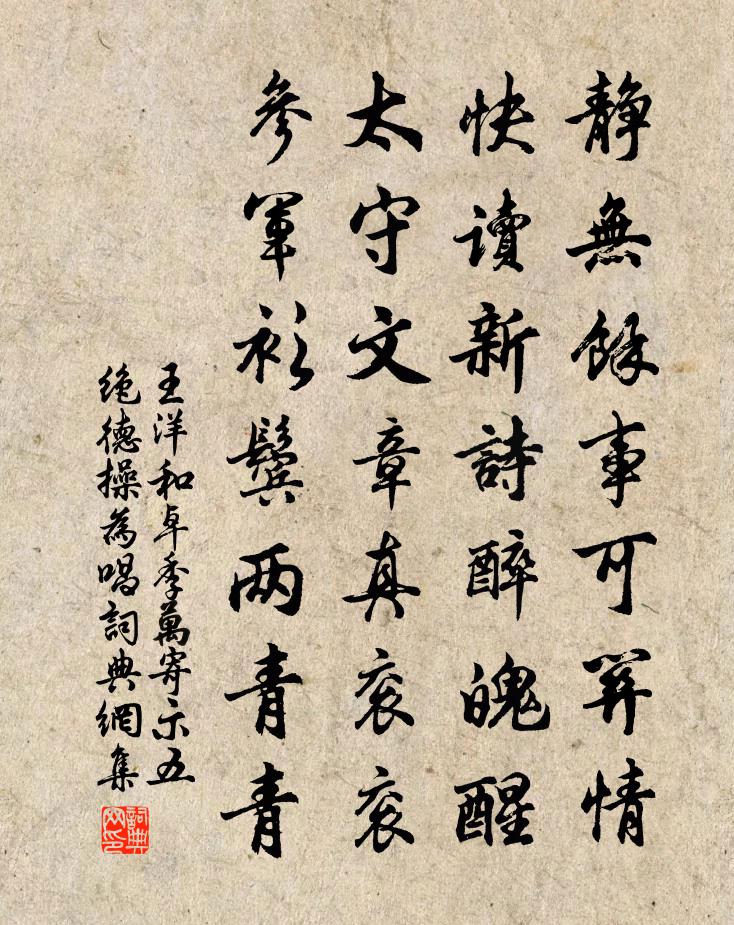 静無餘事可關情
快讀新詩醉魄醒
太守文章真袞袞
參軍衫鬢两青青
王洋和卓季萬寄示五
絕德操為唱詞典網集
詞典网印